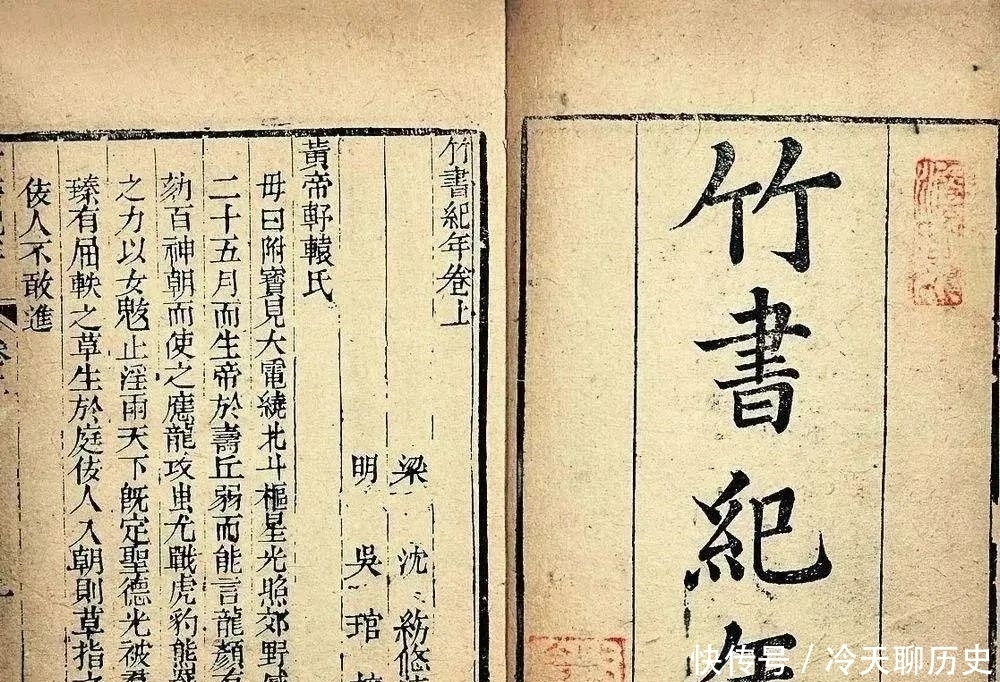 竹書紀年
竹書紀年卷上
梁 沈 約
明 吳 琯
黃帝軒轅氏
母曰附寶見大電繞北斗樞星光照郊野感
二十五月而生帝於壽丘弱而能言龍顏有
劾百神朝而使之應龍攻蚩尤戰虎豹熊
之力以女魃止淫雨天下既定聖德光被
瑧有屈軼之草生於庭佞人入朝則草指
佞人不敢進
快传号／冷天聊历史